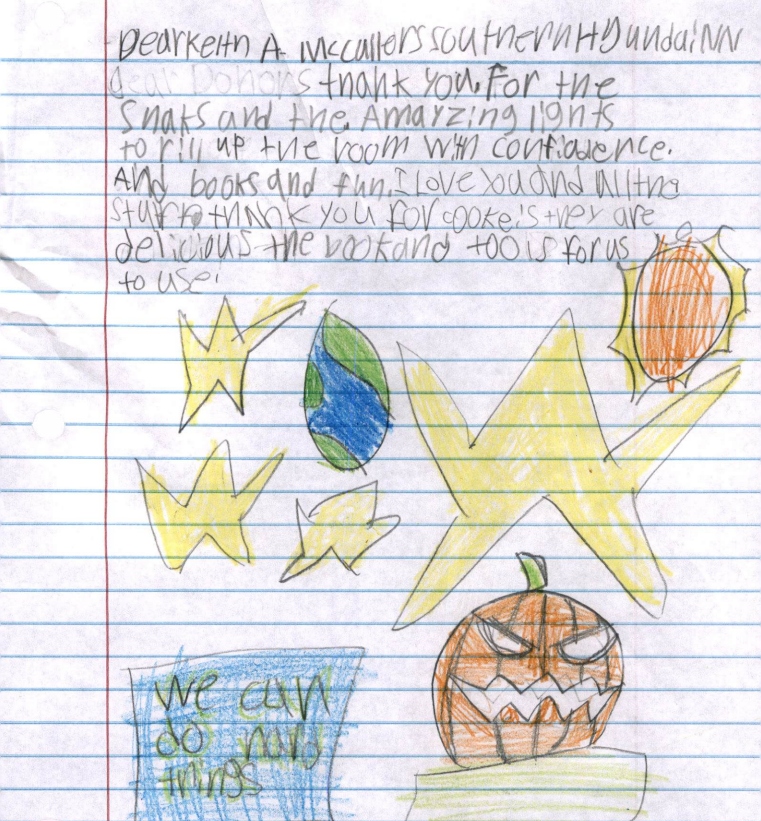 Dear Keith A. Mccallers southern HyundaiNN
Dear Donors thank you. For the
Snaks and the Amarzing lights
to rill up the room with confiadence.
And books and fun. I Love You And All the
stuff to thank you for cooke's they are
delicious the book and too is for us
to use.
we can
do many
things